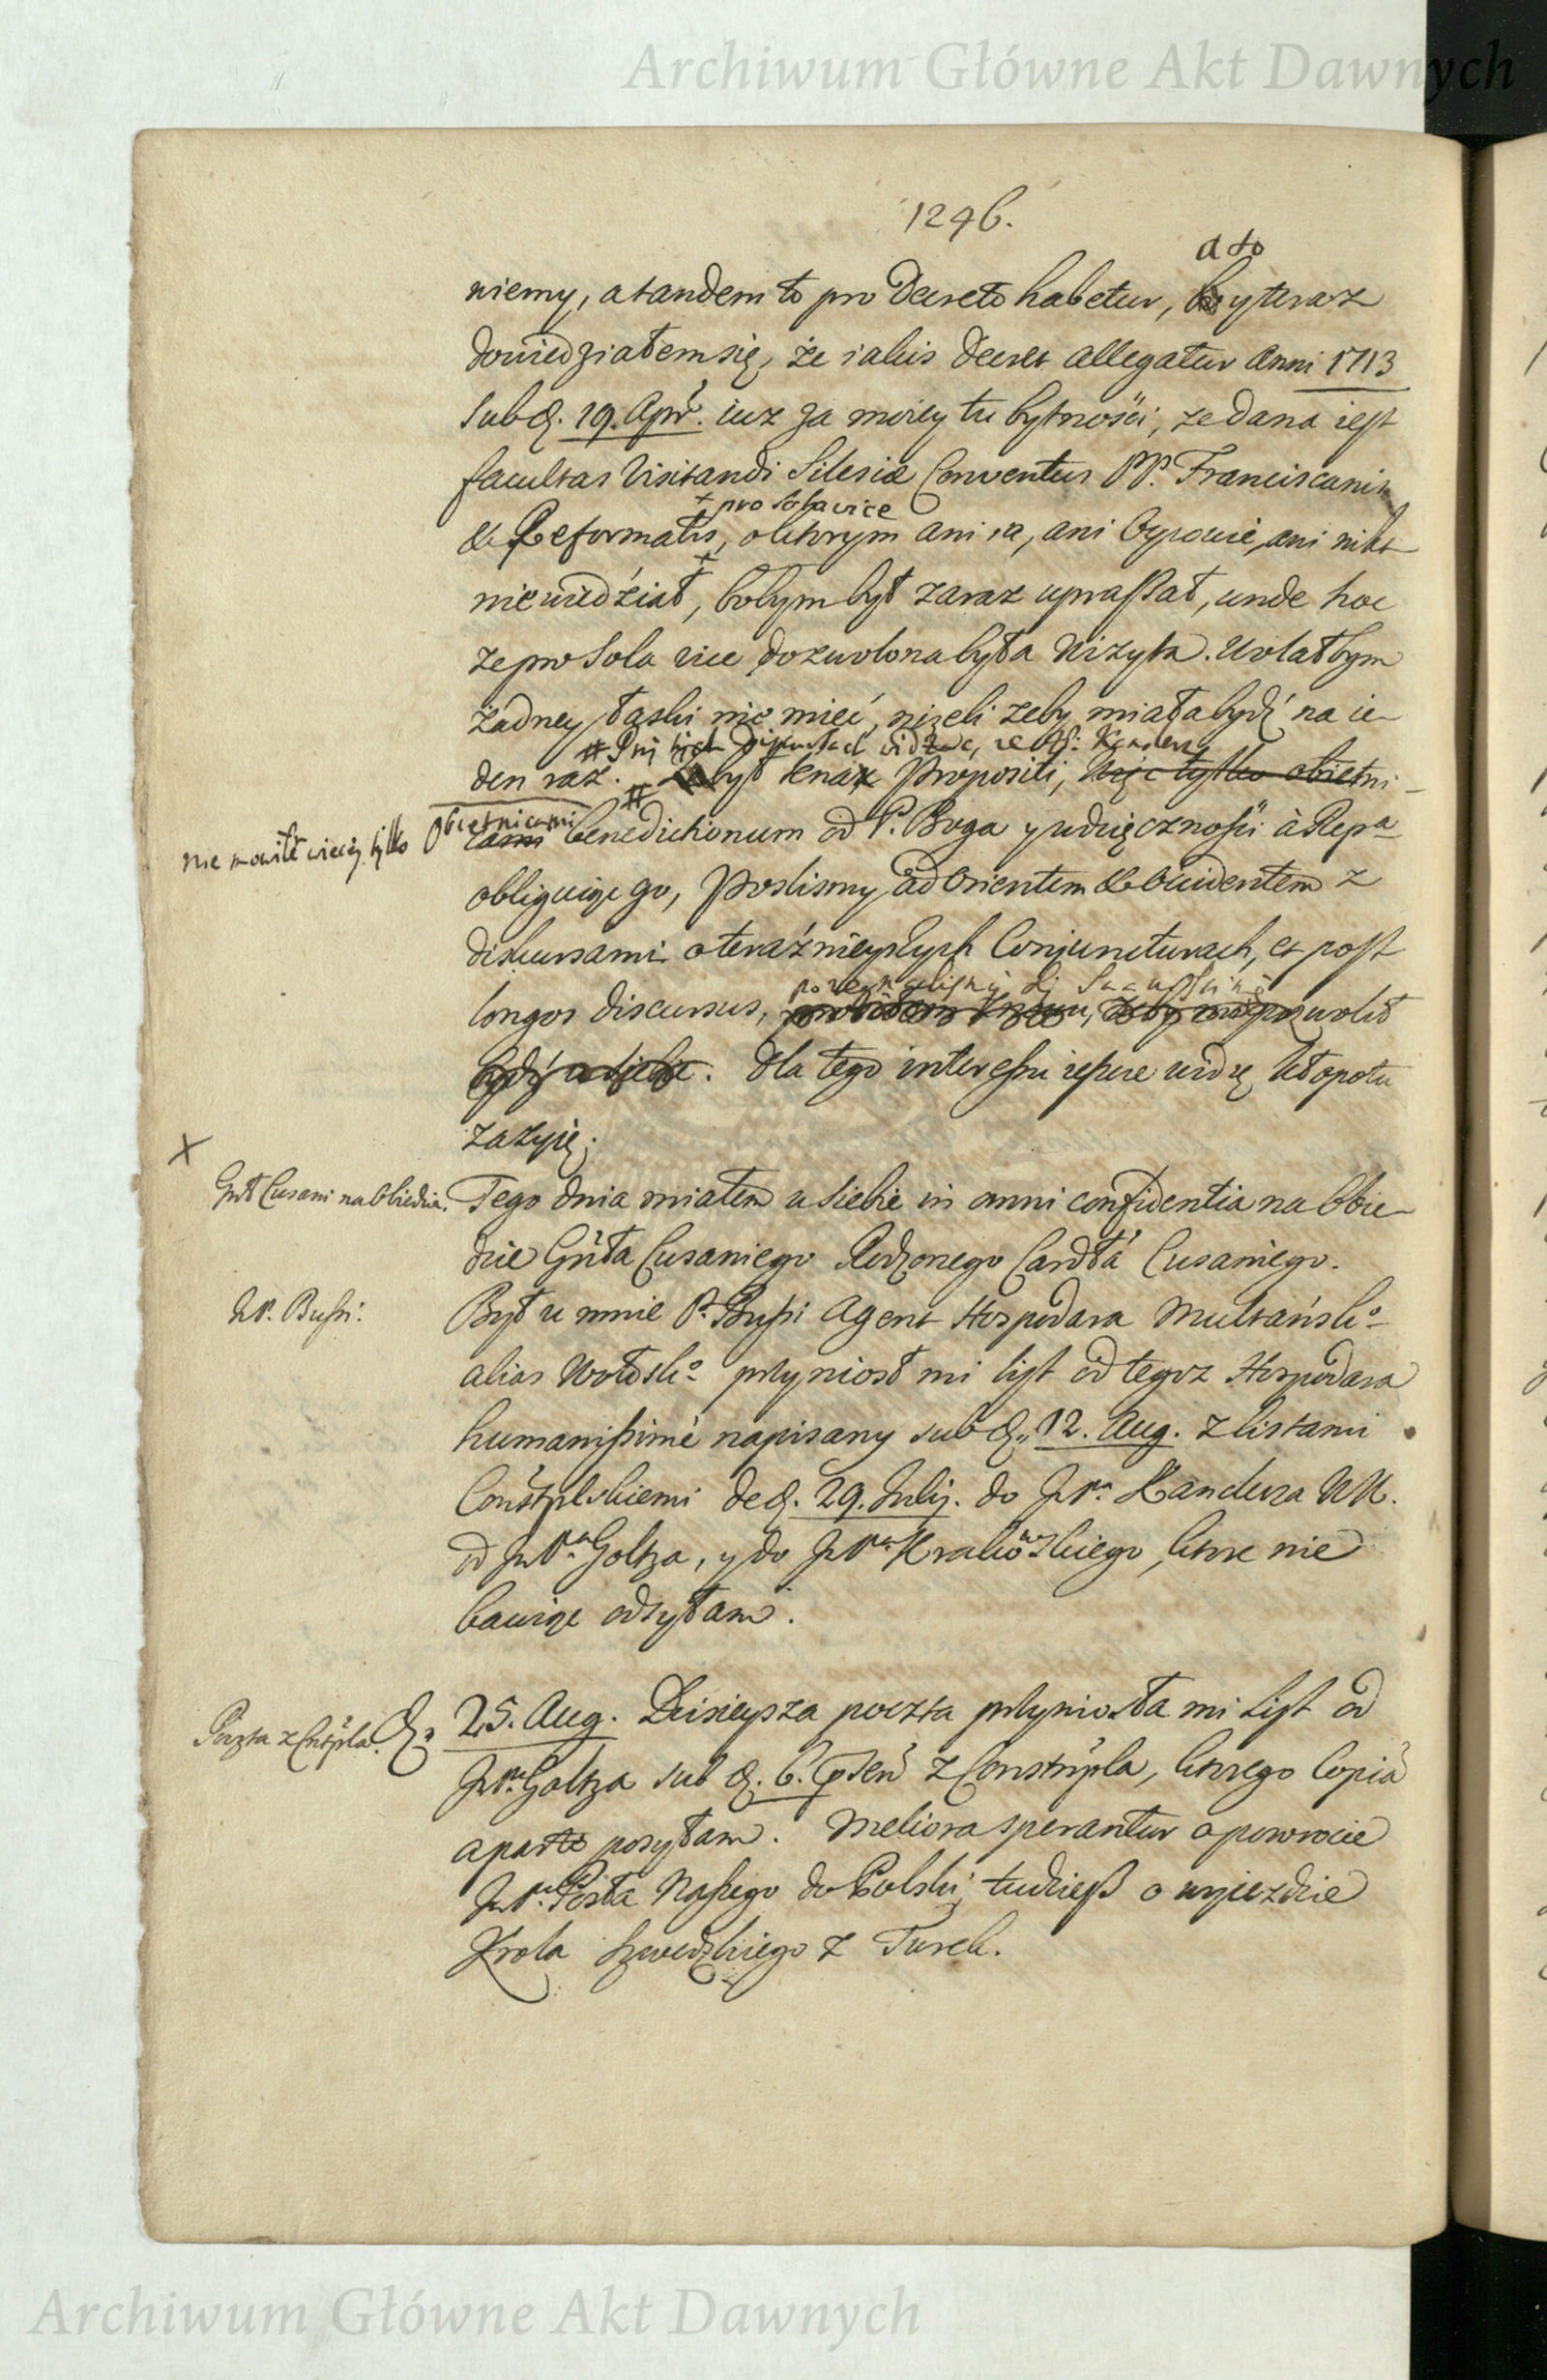 Archiwum Główne Akt Dawnych
1246.
a to
niemy, a tandem to pro Decreto habetur, y teraz
dowiedziałem się, że iakis Decret allegatur Anni 1713
sub d. 19. Apr. iuz za moiey tu bytności, ze dana iest
facultas Visitandi Silesiæ Conventus PP. Franciscanis
+ pro sola vice
& Reformatis, o ktorym ani ia, ani Oycowie, ani nikt
nie wiedźiał, bobym był zaraz upraszał, unde hoc
ze pro Sola vice dozwolona była Wizyta. Wolałbym
żadney łaski nie mieć, niżeli żeby miała bydź na ie-
# Przy tych widząc, ze
den raz. # był tenax Propositi, Więc tylko obietni-
nie mowiłe więcey tylko Obietnicami
cami benedictionum od P. Boga y wdzięcznośći à Repa
obliguiąc go, Poszlismy ad Orientem & Occidentem z
diskursami o teraźnieyszych Conjuncturach, et post
pozegnalismy się
longos discursus, pozwolił
bydź u siebie. Dla tego interessu ieszcze widzę kłopotu
zazyię.
X
Gnł Cusani na Obiedzie. Tego dnia miałem u siebie in omni confidentia na Obie-
dzie Gnła Cusaniego Rodzonego Cardła Cusaniego.
JP. Bussi: Był u mnie P. Bussi Agent Hospodara Multańsko
alias Wołosko przyniosł mi list od tegoz Hospodara
humanissimè napisany sub d. 12. Aug. z listami
Constplskiemi de d. 29. Julij. do JPa Kanclerza WK.
od JPa Goltza, y do JPa Krakowskiego, ktore nie
bawiąc odsyłam.
Poczta z Cnstpla. d. 25. Aug. Dzisieysza poczta przyniosła mi List od
JPa Goltza sub d. 6. z Constnpla, ktorego Copią
aparte posyłam. Meliora sperantur o powrocie
JPa Posła Naszego do Polski, tudziesz o wyiezdzie
Krola Szwedzkiego z Turek.
Archiwum Główne Akt Dawnych